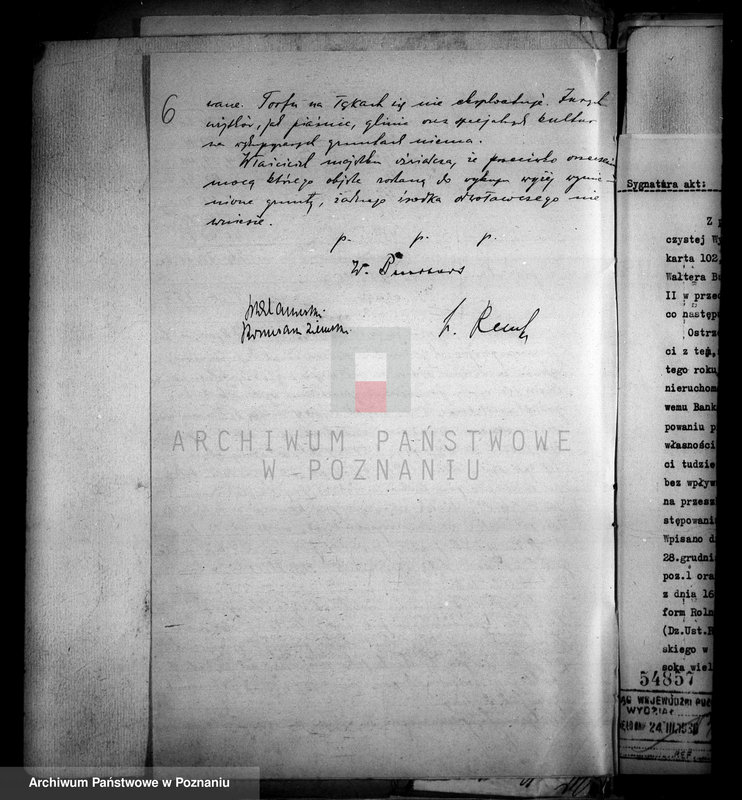 6
wane. Torfu na łąkach się nie eksploatuje. Innych
użytków, jak piaśnic, glinic oraz specjalnych kultur
na wykupywanych gruntach niema.
Właściciel majątku oświadcza, że przeciwko orzeczeniu
mocą którego objęte zostaną do wykupu wyżej wymie-
nione grunty, żadnego środka odwoławczego nie
wniesie.
p. p. p.
W.
ARCHIWUM PAŃSTWOWE
W POZNANIU
Sygnatura akt:
Z p
czystej Wy
karta 102,
Waltera Bu
II w przed
co następu
Ostrze
ci z tem,
tego roku,
nieruchomo
wemu Banko
powaniu p
własności
ci tudzie
bez wpływ
na przesz
stępowani
Wpisano d
28.grudni
poz.1 ora
z dnia 16
form Roln
(Dz.Ust.R
skiego w
soka wiel
54857
WOJEWÓDZKI
WYDZIAŁ
24.III.193
Archiwum Państwowe w Poznaniu